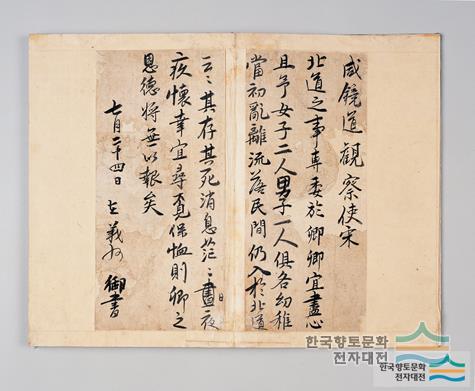 咸鏡道觀察使宋
北道之事專委於卿卿宜盡心
且予女子二人男子一人俱各幼稚
當初亂離流落民間仍入於北道
云云其存其死消息茫茫晝夜
疚懷幸宜尋覓保恤則卿之
恩德將無以報矣
七月二十四日 在義州 御書
한국향토문화
전자대전
한국향토문화
전자대전